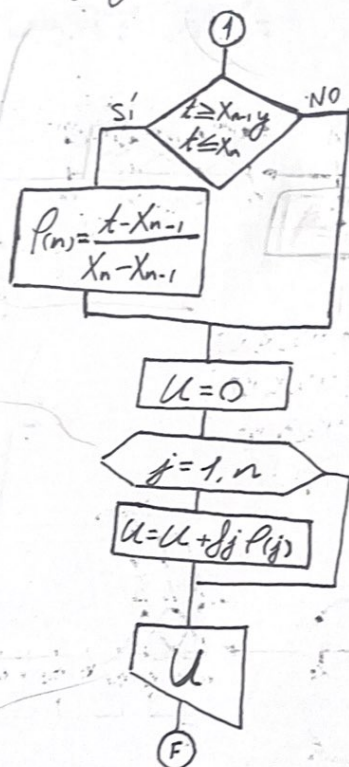 1
SÍ
NO
t≥Xn-1 y
t≤Xn
P(n)=t-Xn-1/Xn-Xn-1
U=0
j=1,n
U=U+fj P(j)
U
F